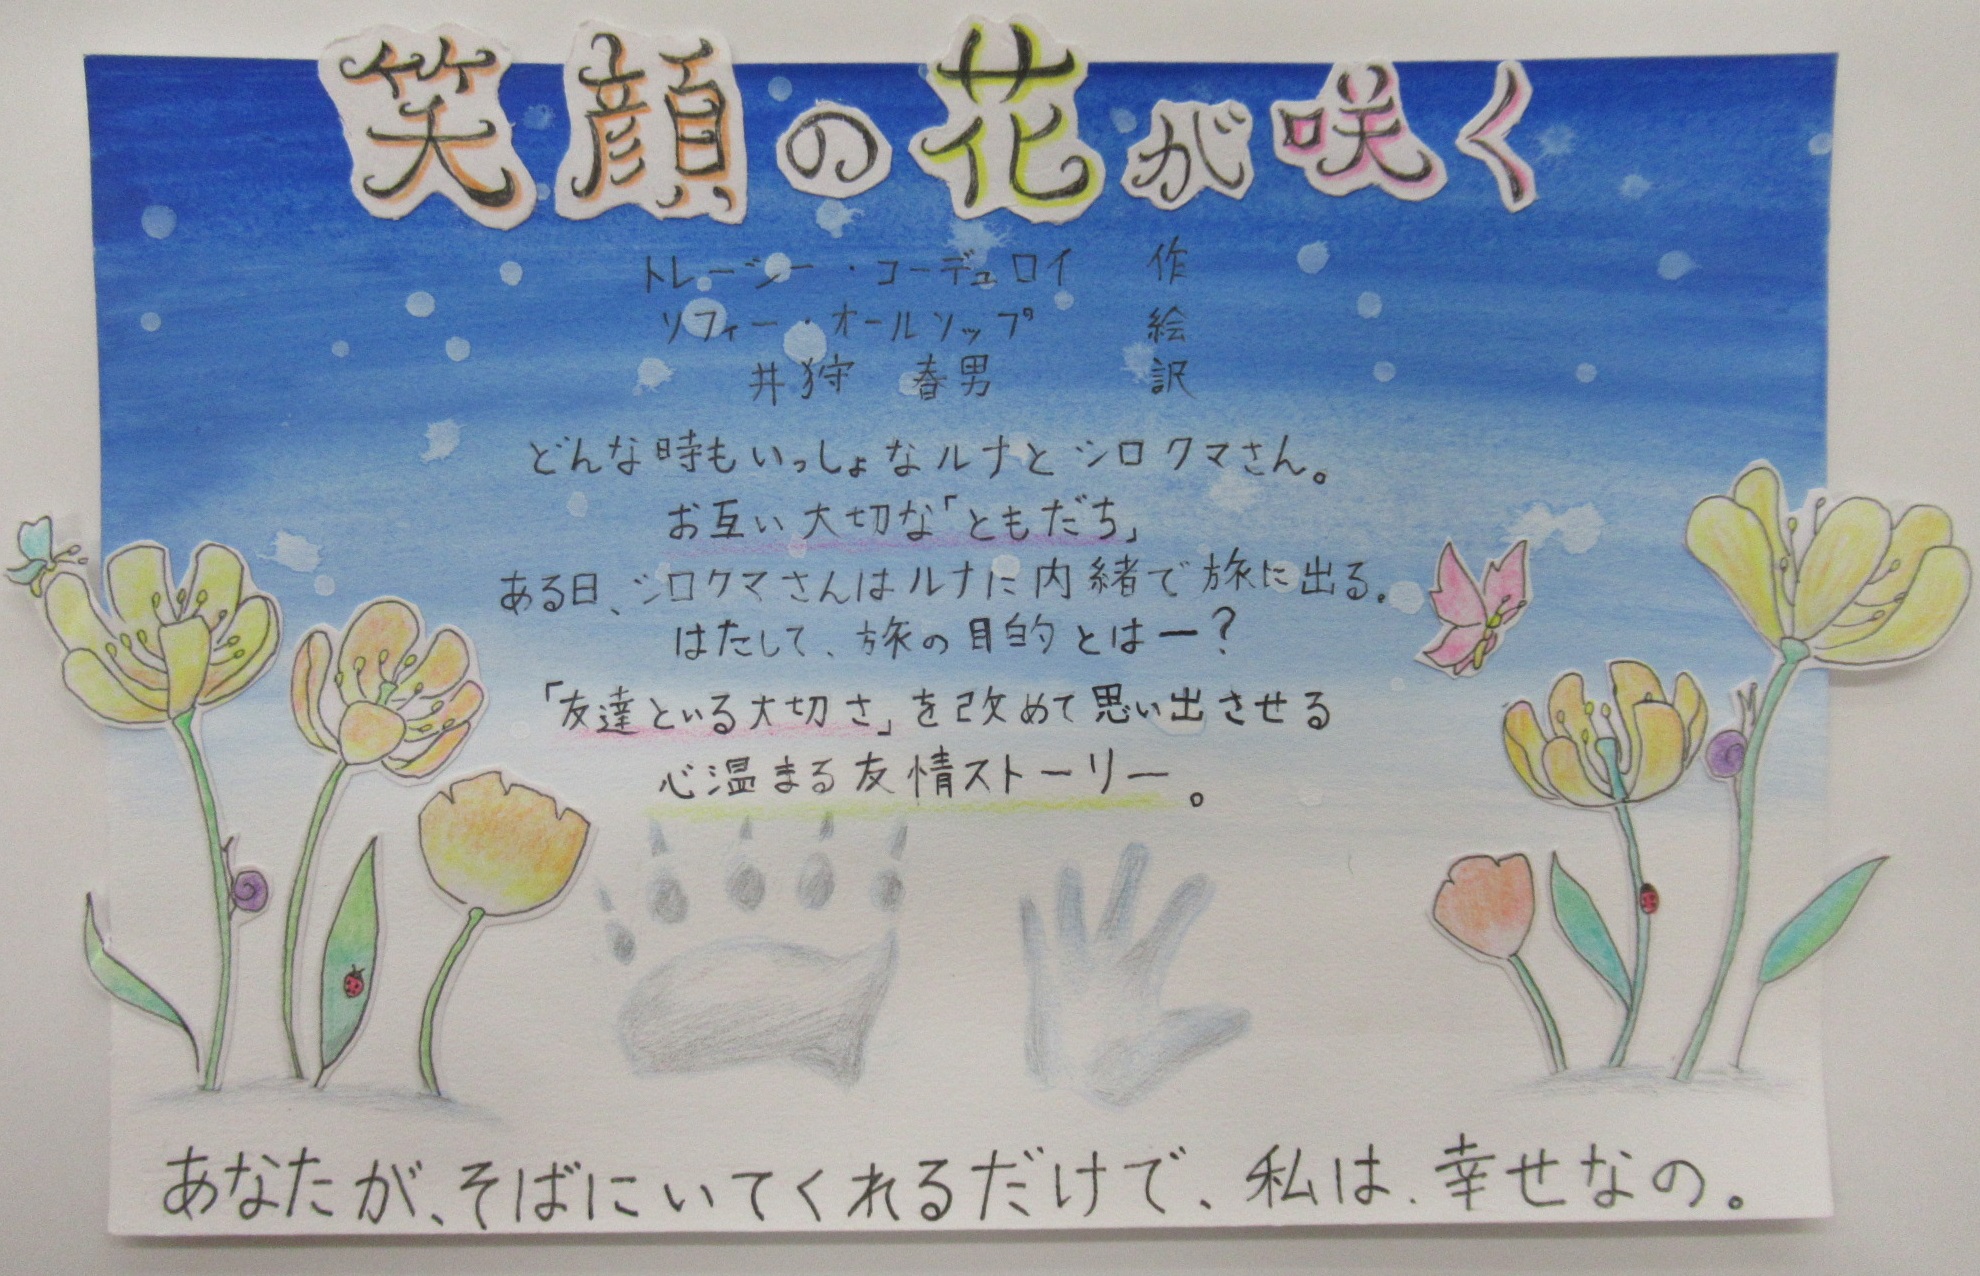 笑顔の花が咲く
トレーシー・コーデュロイ 作
ソフィー・オールソップ 絵
井狩 春男 訳
どんな時もいっしょなルナとシロクマさん。
お互い大切な「ともだち」
ある日、シロクマさんはルナに内緒で旅に出る。
はたして、旅の目的とはー?
「友達といる大切さ」を改めて思い出させる
心温まる友情ストーリー。
あなたが、そばにいてくれるだけで、私は、幸せなの。